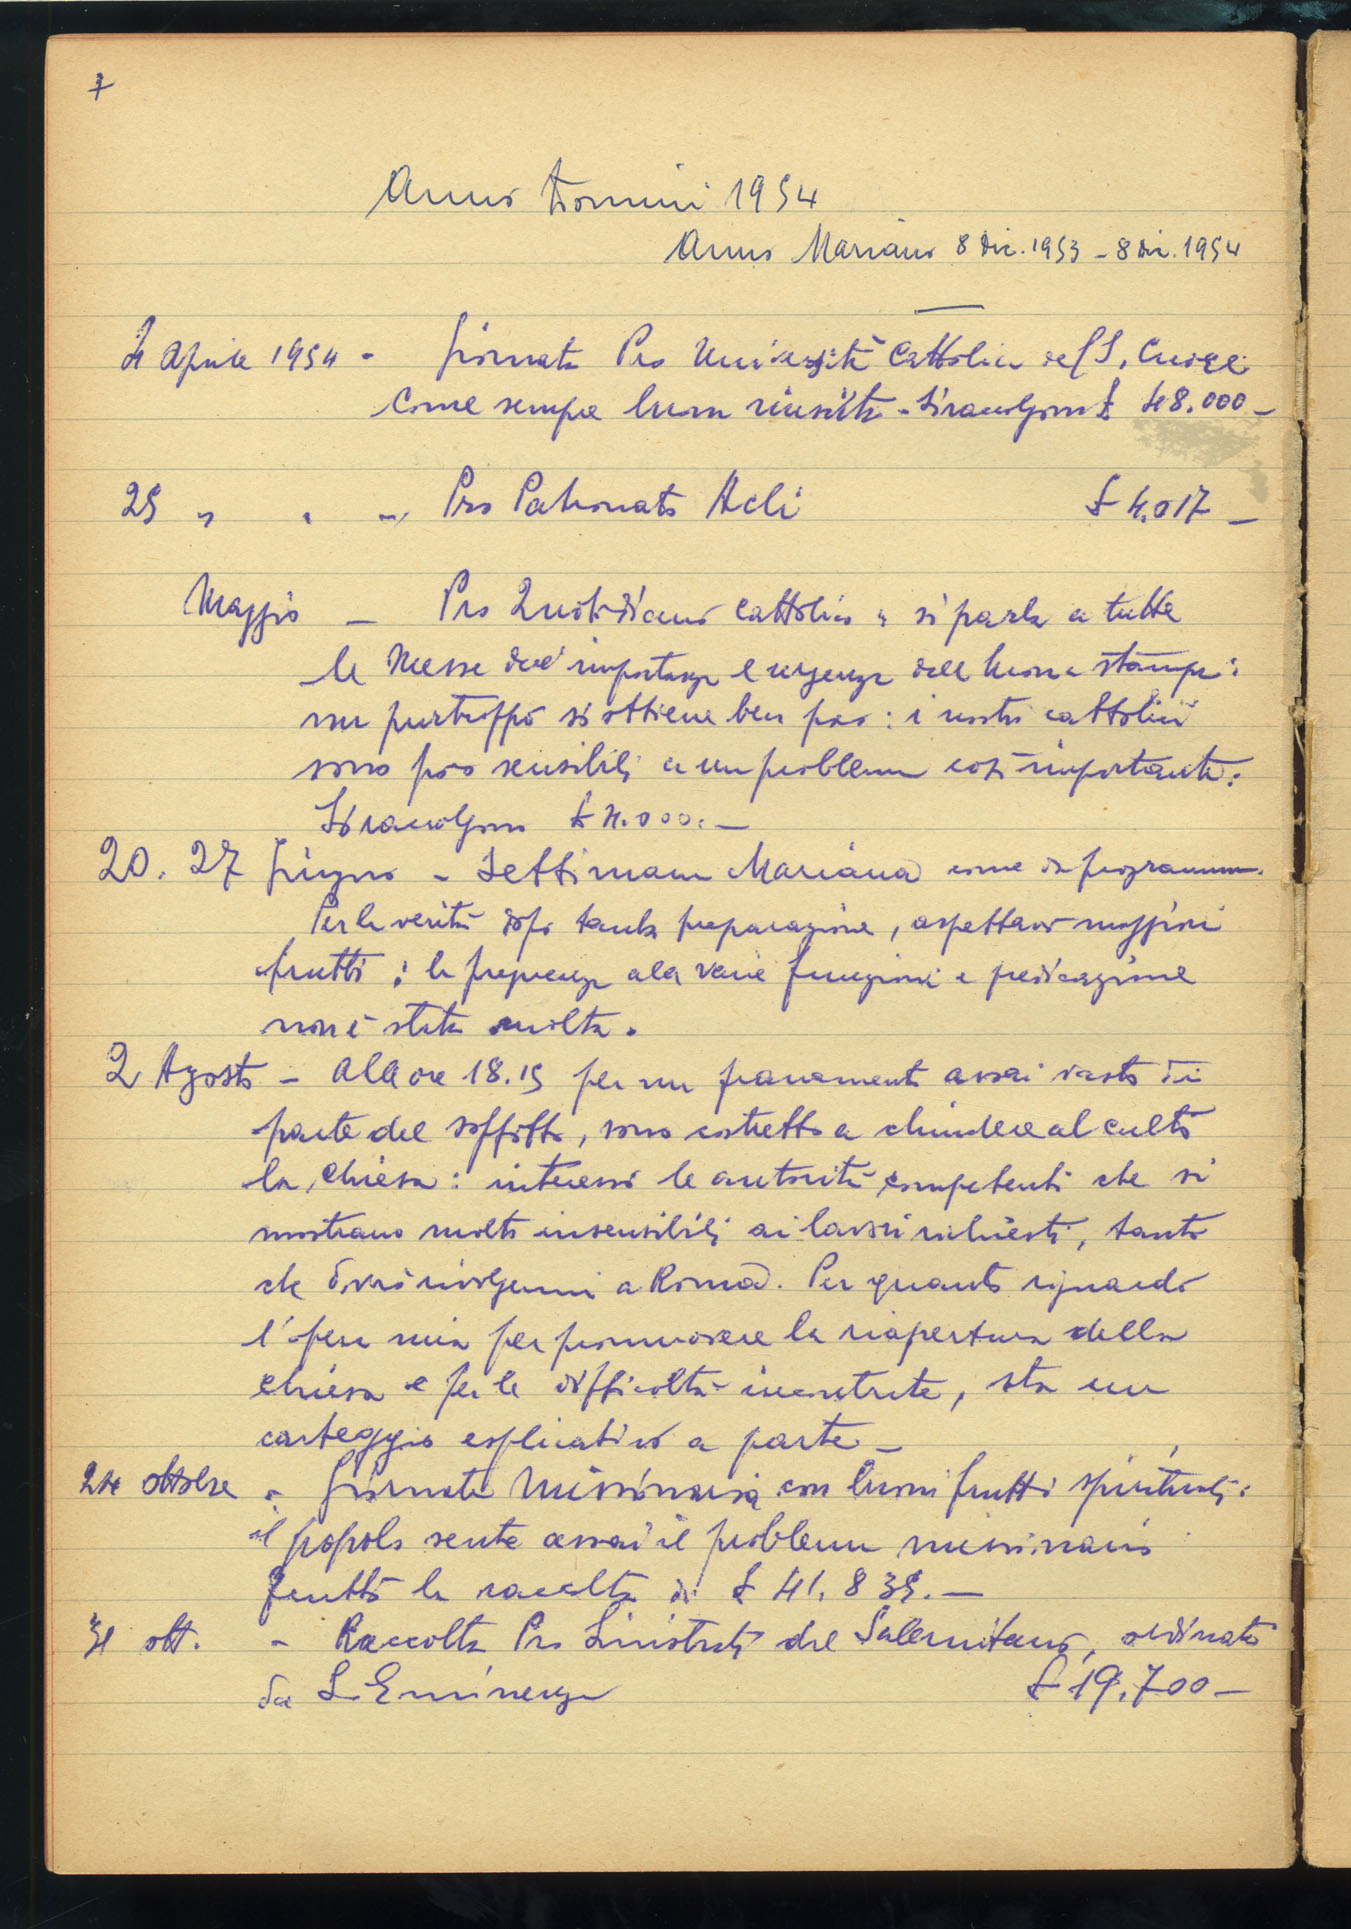 7
Anno Domini 1954
Anno Mariano 8 Dic. 1953 - 8 Dic. 1954
4 Aprile 1954 - Giornata Pro Università Cattolica del S. Cuore.
Come sempre buona riuscita - Si raccolgono £ 48.000 -
25 " " - Pro Patronato Acli £ 4.017 -
Maggio - Pro Quotidiano Cattolico - si parla a tutte
le Messe dell'importanza e urgenza della buona stampa:
ma purtroppo si ottiene ben poco: i nostri cattolici
sono poco sensibili a un problema così importante.
Si raccolgono £ 4.000. -
20. 27 Giugno - Settimana Mariana come da programma.
Per la verità dopo tanta preparazione, aspettavo maggiori
frutti: la frequenza alle varie funzioni e predicazione
non è stata molta.
2 Agosto - Alle ore 18.15 per un franamento assai vasto di
parte del soffitto, sono costretto a chiudere al culto
la chiesa: interessai le autorità competenti che si
mostrano molto insensibili ai lavori richiesti, tanto
che dovrò rivolgermi a Roma. Per quanto riguarda
l'opera mia per promuovere la riapertura della
chiesa e per le difficoltà incontrate, sta un
carteggio esplicativo a parte -
24 ottobre - Giornata Missionaria con buoni frutti spirituali:
il popolo sente assai il problema missionario
Fruttò la raccolta di £ 41.835. -
31 ott. - Raccolta Pro Sinistrati del Salernitano, ordinata
da S. Eminenza £ 19.700 -